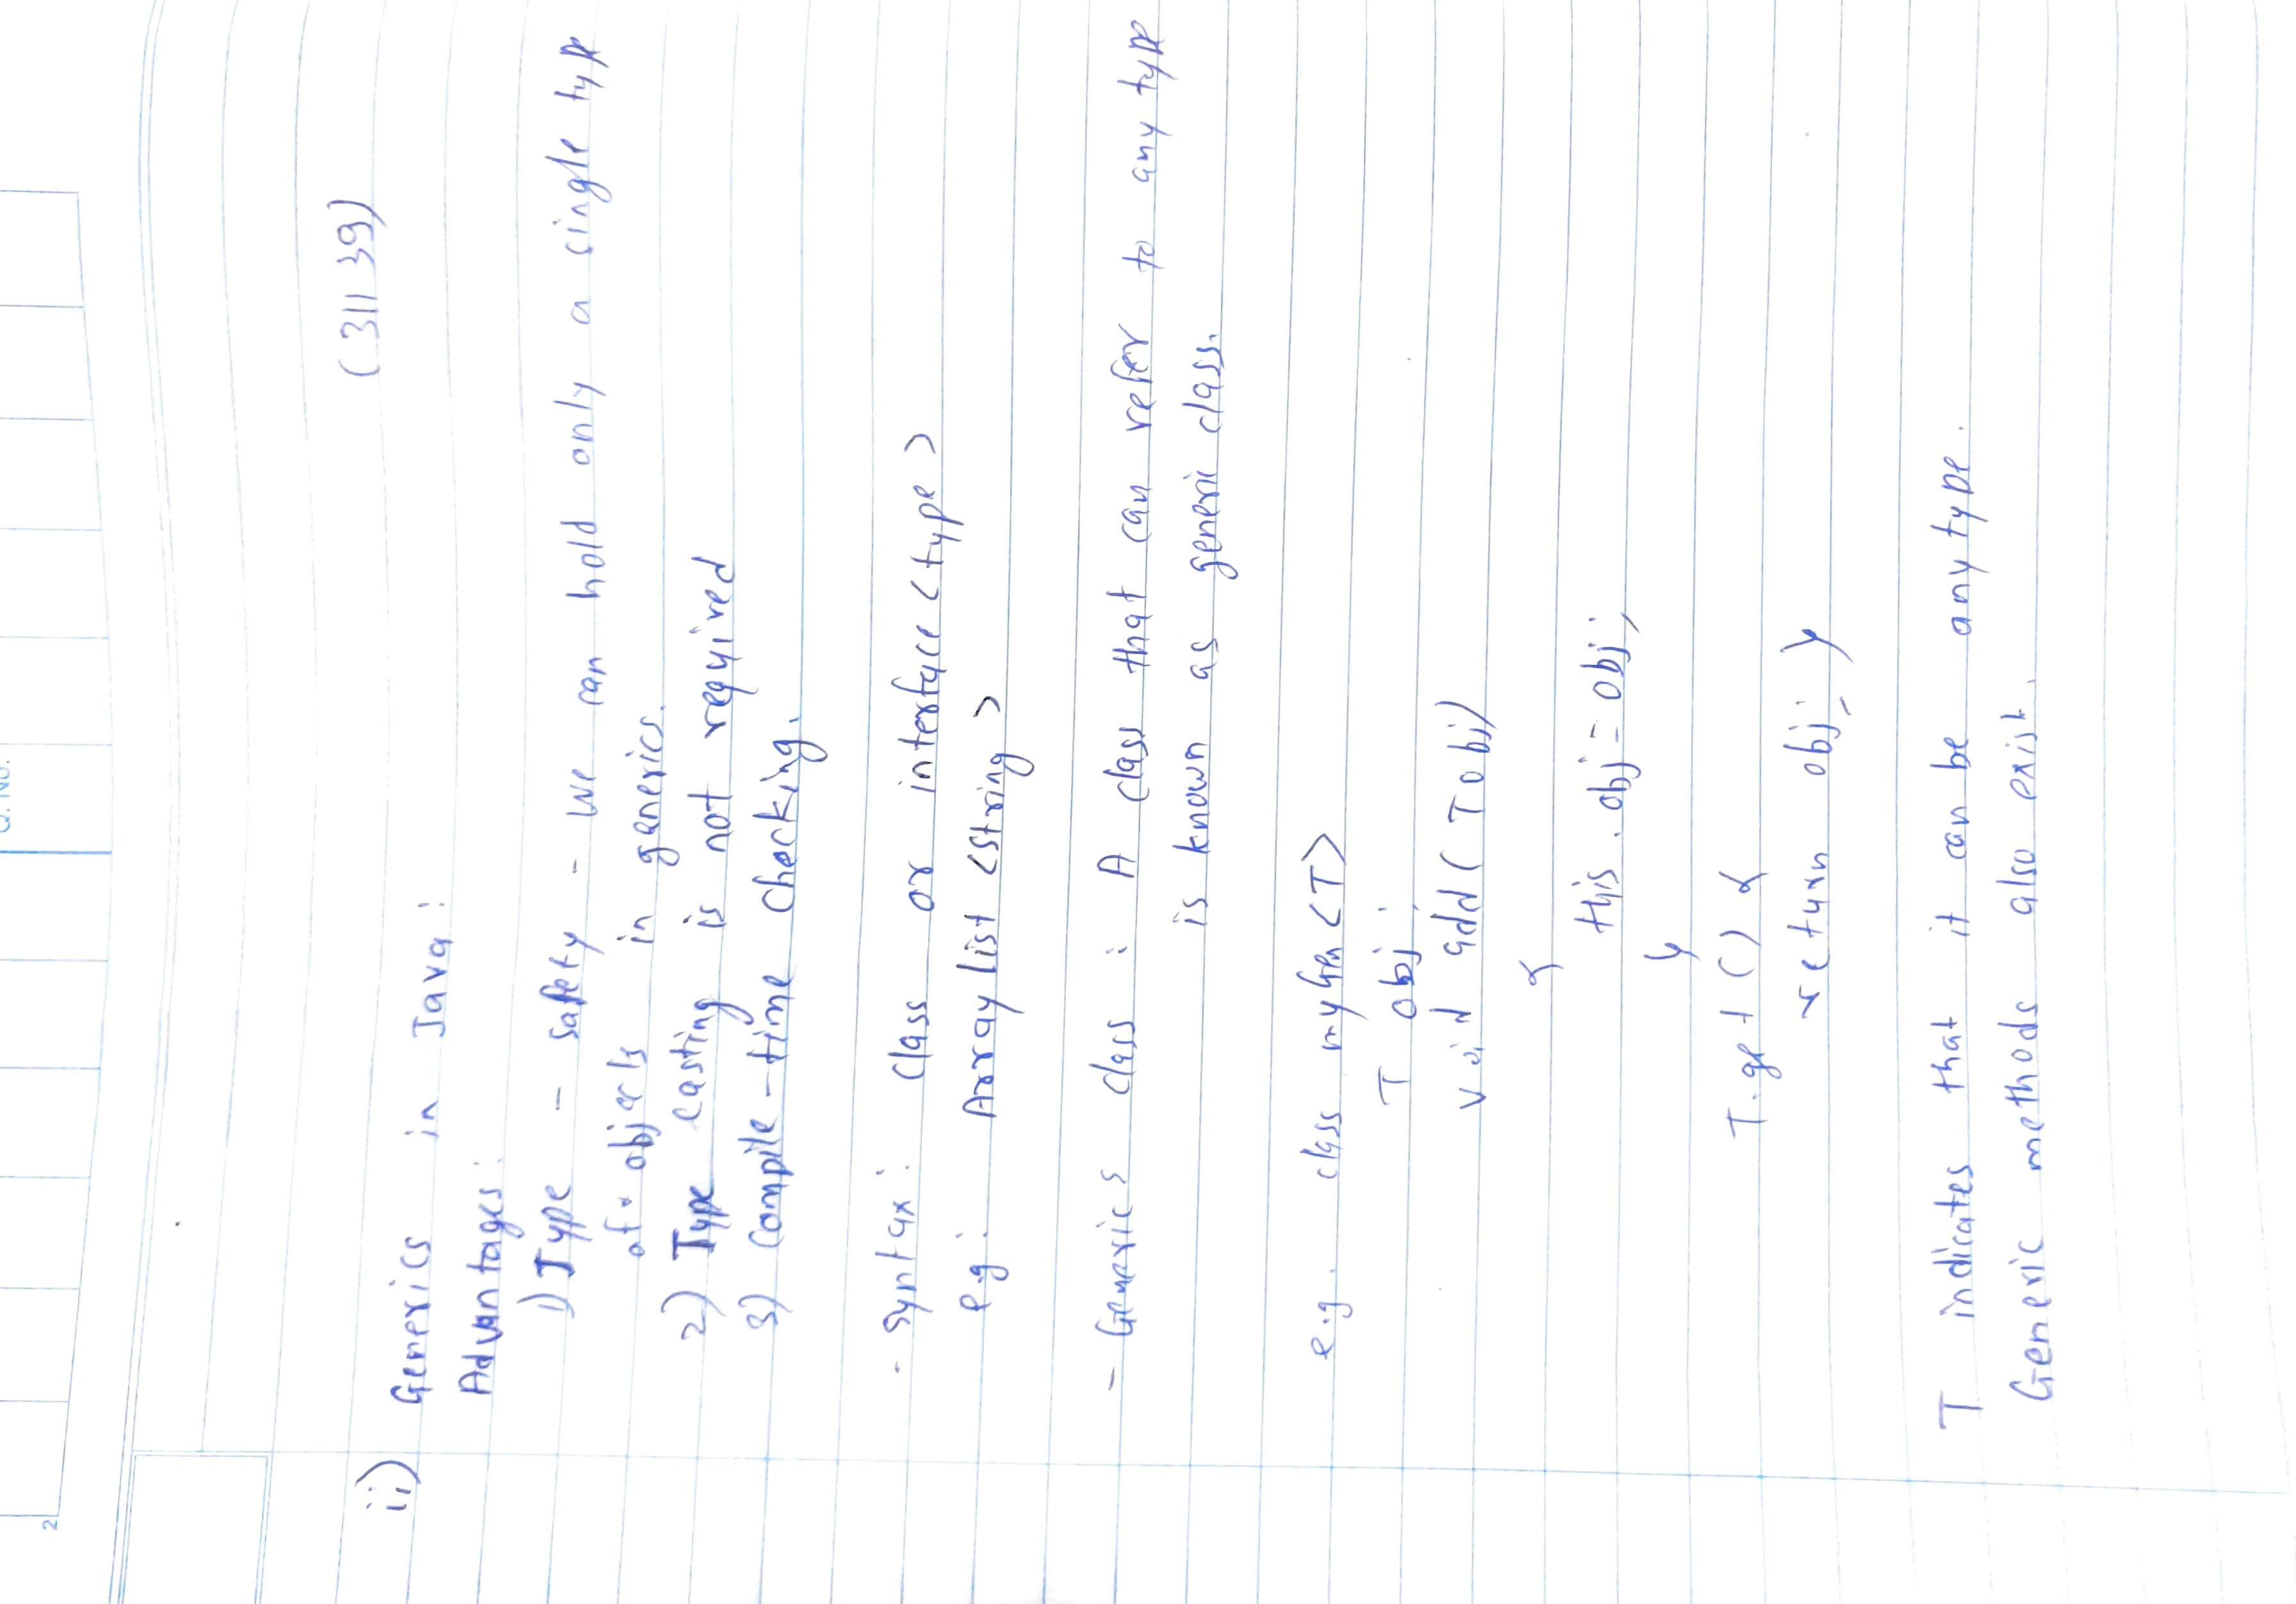 2
Q. No.
(311 39)
ii) Generics in Java :
Advantages :
1) Type - safety - we can hold only a single type
of objects in generics.
2) Type casting is not required
3) Compile-time checking.
- Syntax : class or interface <type>
e.g : Array list <string>
- Generics class : A class that can refer to any type
is known as generic class.
e.g. class mygen <T>
T obj ;
void add (T obj)
{
this . obj = obj ;
}
T . get () {
return obj ; }
T indicates that it can be any type.
Generic methods also exist.